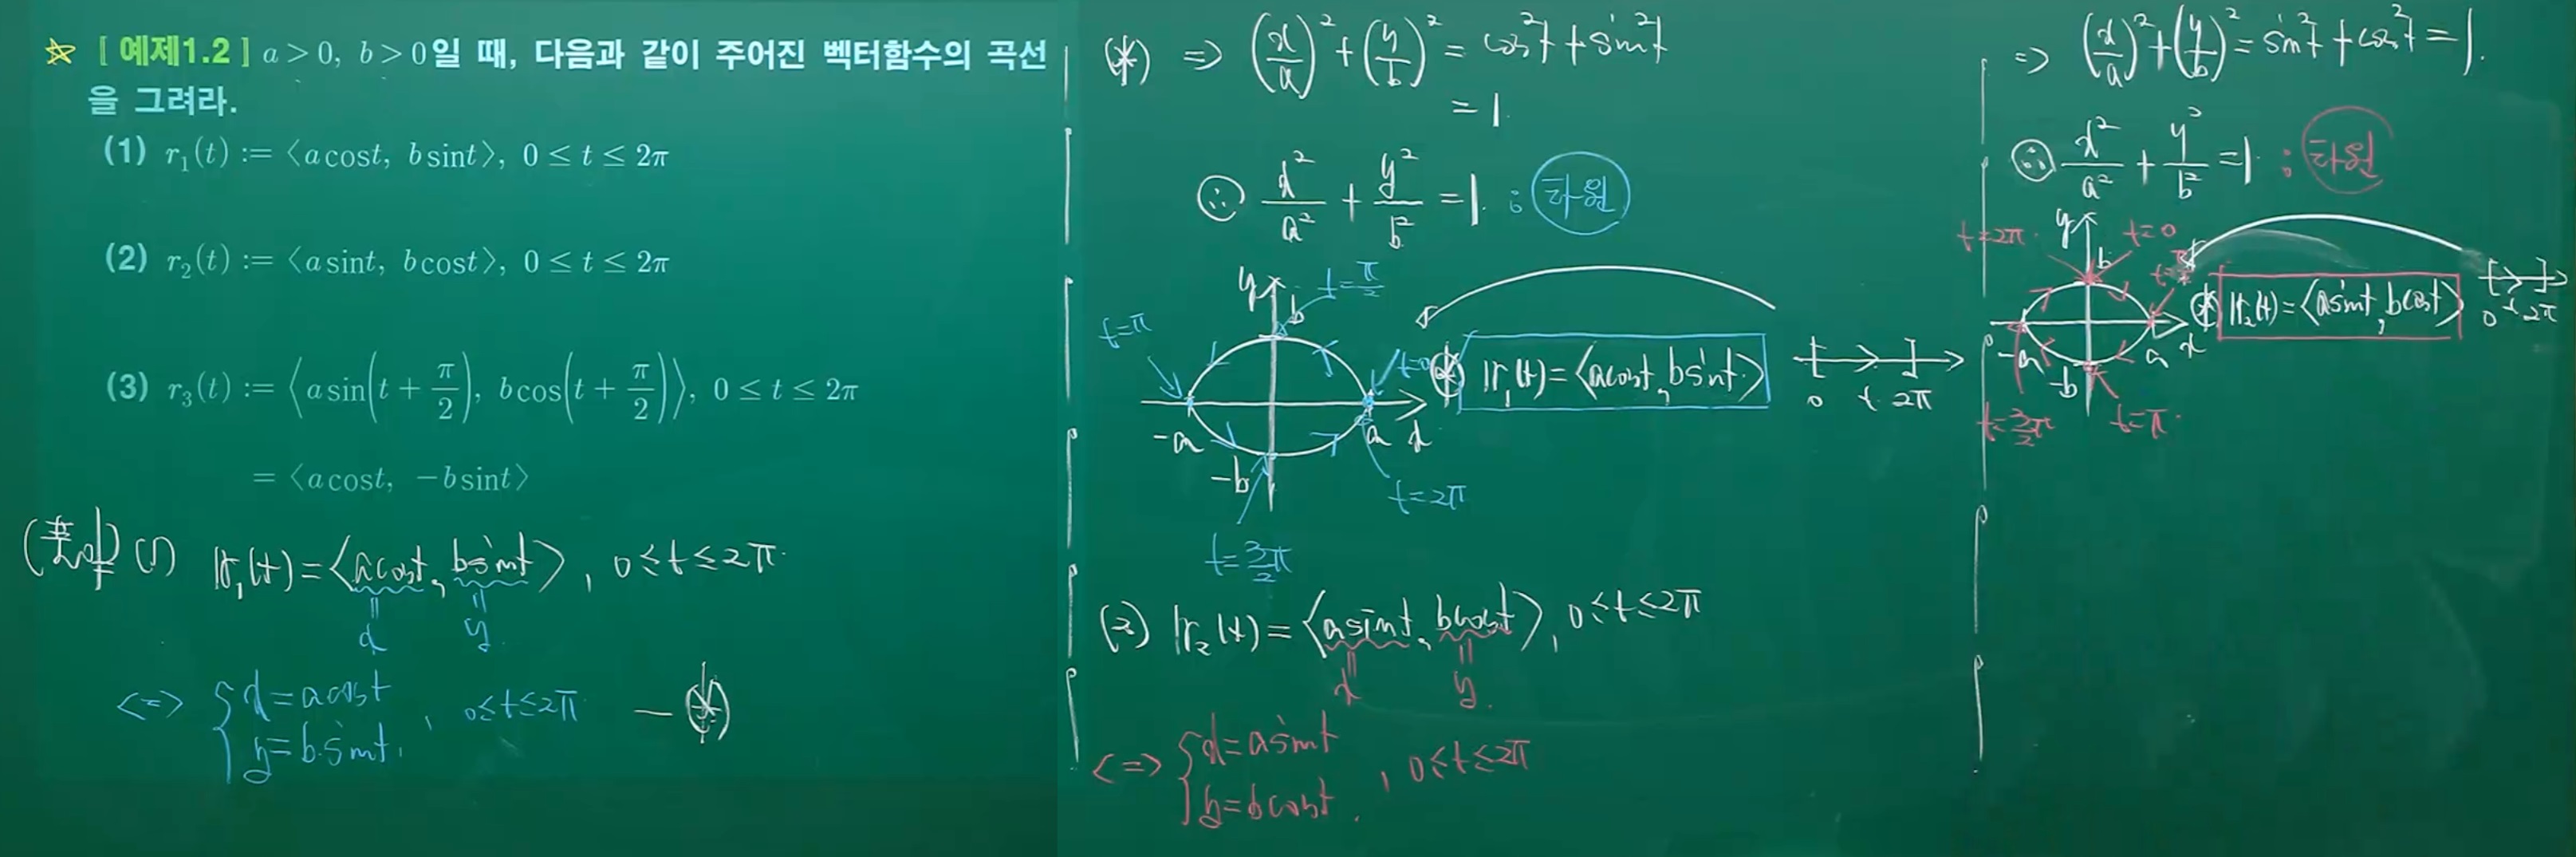 ☆ [ 예제1.2 ] a > 0, b > 0일 때, 다음과 같이 주어진 벡터함수의 곡선
을 그려라.
(1) r₁(t) := ⟨a cost, b sint⟩, 0 ≤ t ≤ 2π
(2) r₂(t) := ⟨a sint, b cost⟩, 0 ≤ t ≤ 2π
(3) r₃(t) := ⟨a sin(t + π/2), b cos(t + π/2)⟩, 0 ≤ t ≤ 2π
= ⟨a cost, −b sint⟩
(풀이) (1) r₁(t) = ⟨acost, bsint⟩, 0≤t≤2π.
x y.
<=> { x=acost
y=b.sint, , 0≤t≤2π — (*)
(*) => (x/a)² + (y/b)² = cos²t + sin²t
= 1.
∴ x²/a² + y²/b² = 1. : 타원
y b t=π/2
t=π t=0
(*) r₁(t) = ⟨acost, bsint.⟩
0 t 2π
-a a x
-b t=2π
t=3/2π
(2) r₂(t) = ⟨asint, bcost⟩, 0≤t≤2π
x y.
<=> { x=asint
y=bcost. , 0≤t≤2π
=> (x/a)² + (y/b)² = sin²t + cos²t = 1.
∴ x²/a² + y²/b² = 1 : 타원
t=2π y b t=0
(*) r₂(t) = ⟨asint, bcost⟩
0 t 2π
-a a x
-b
t=3/2π t=π.